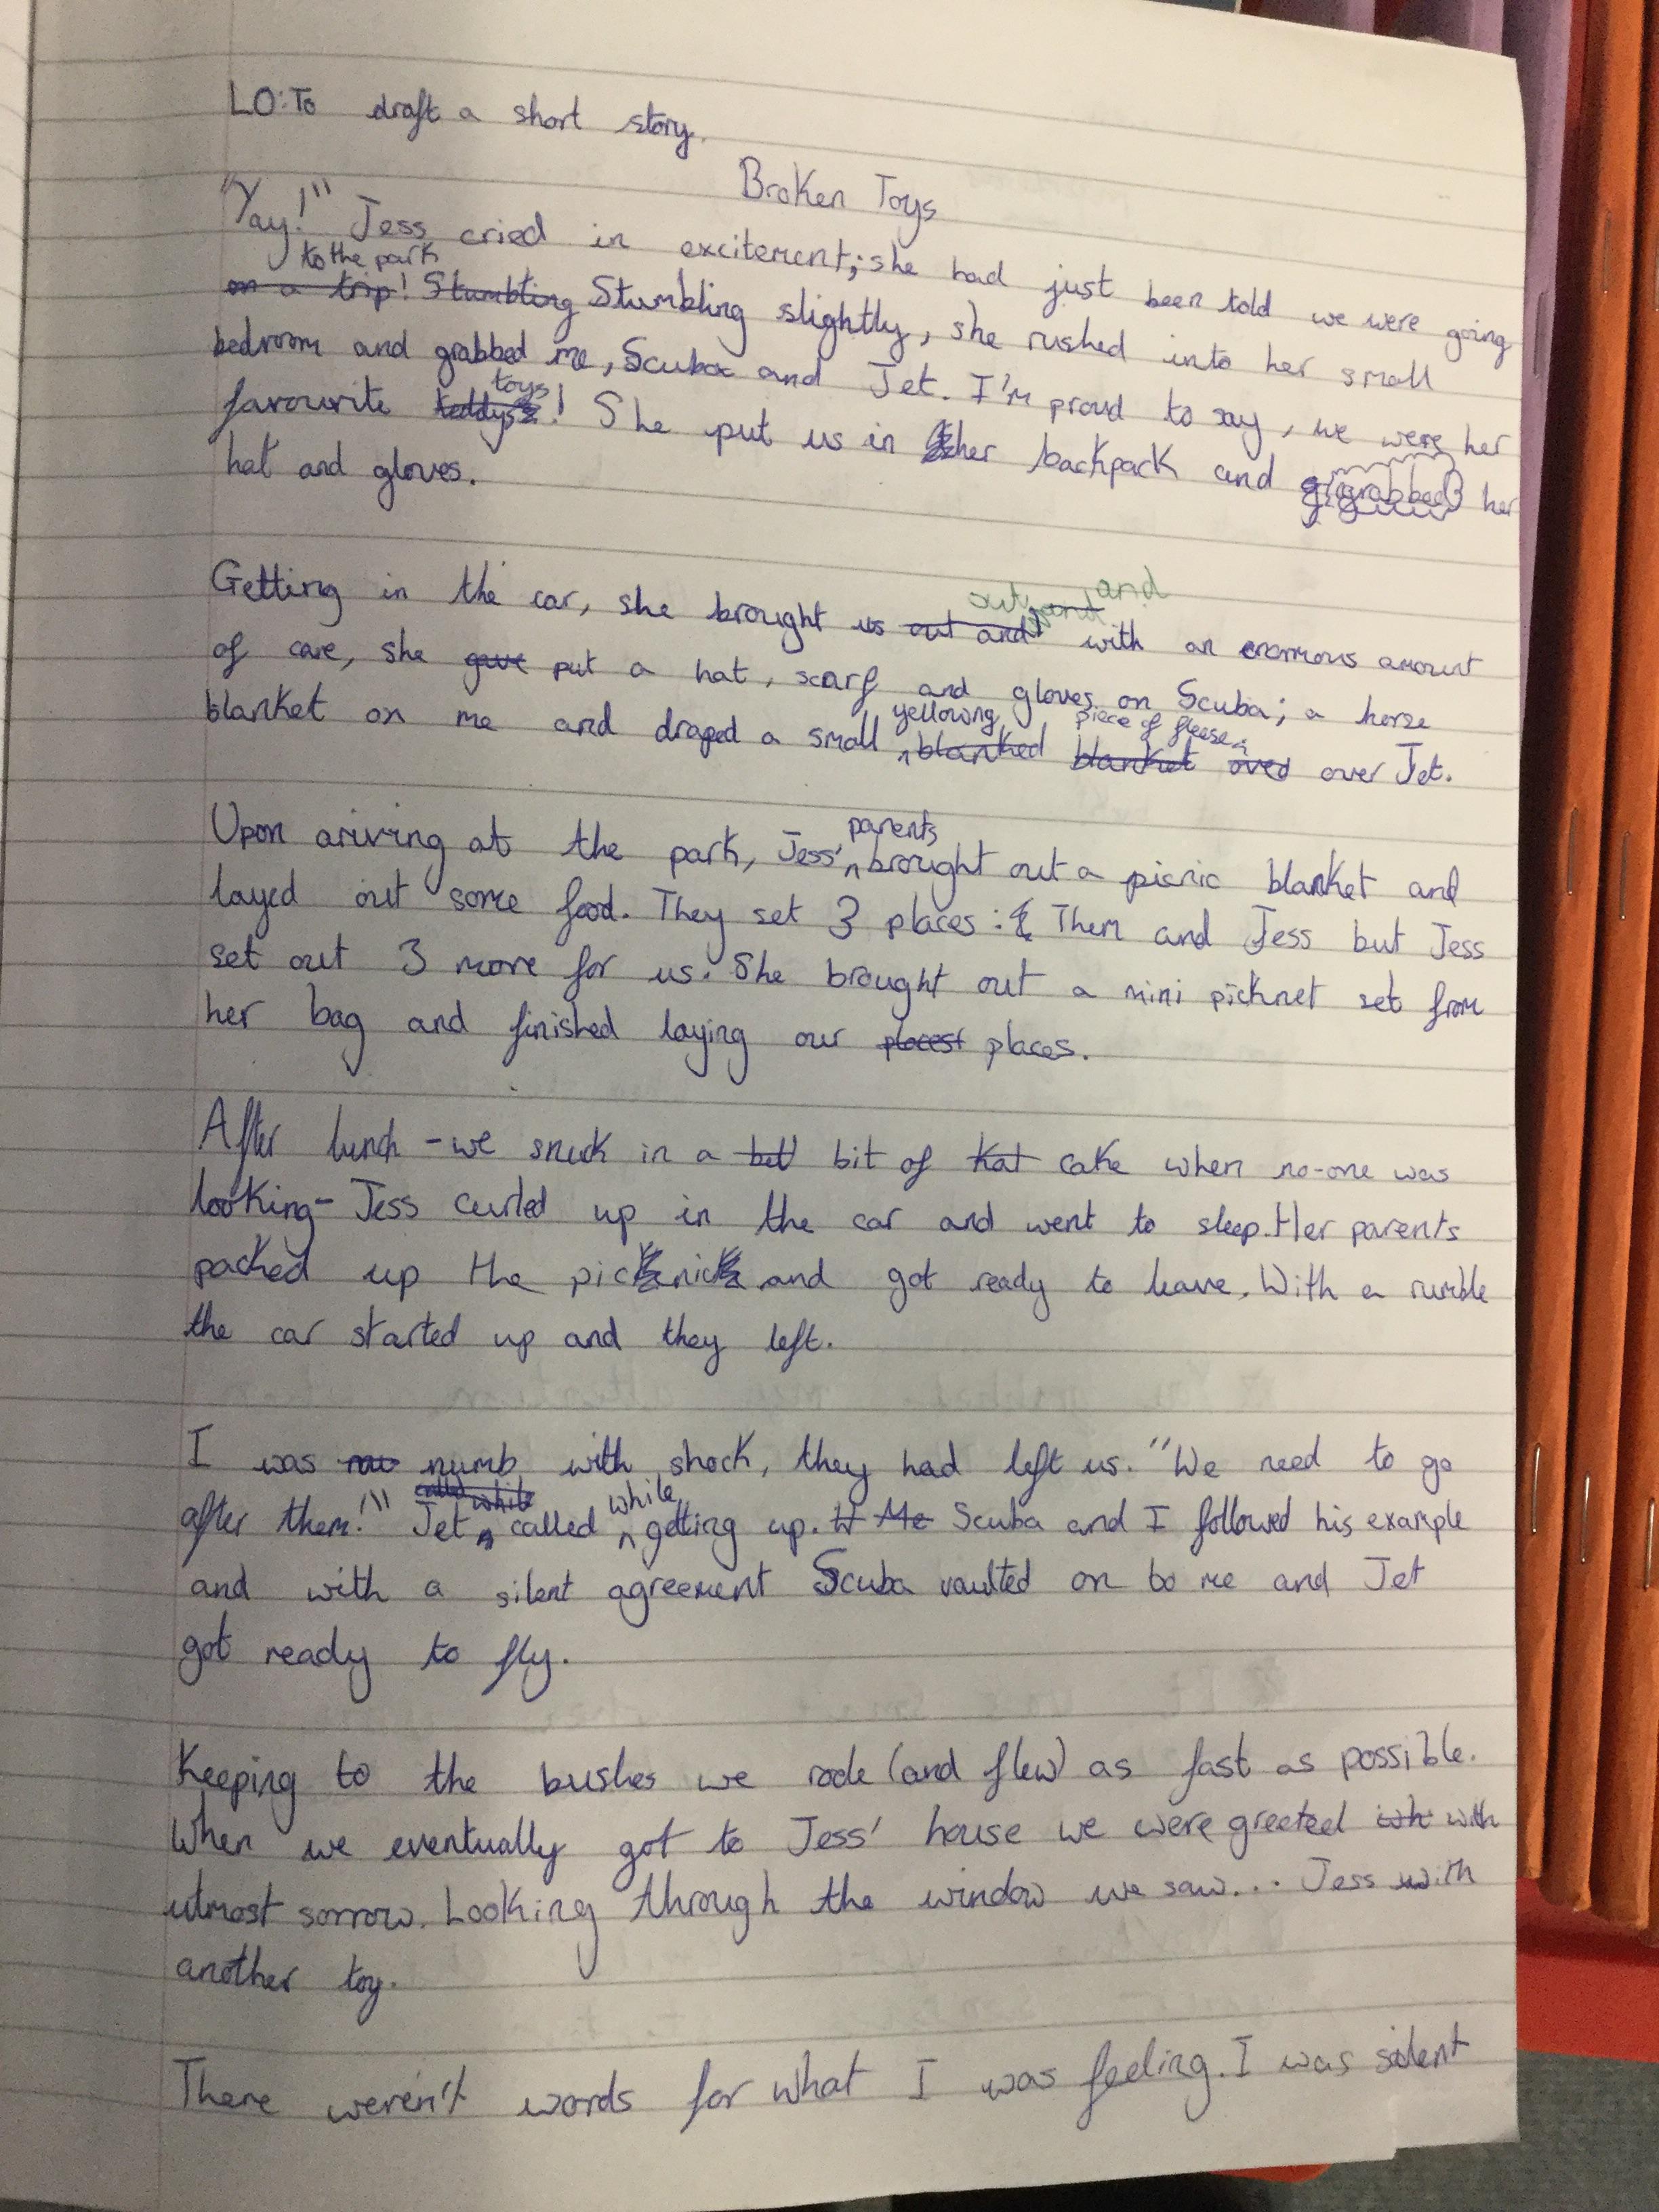 LO: To draft a short story.
Broken Toys
"Yay!" Jess cried in excitement; she had just been told we were going
to the park
on a trip! Stumbling Stumbling slightly, she rushed into her small
bedroom and grabbed me, Scuba and Jet. I'm proud to say, we were her
toys
favourite teddys! She put us in her backpack and grabbed her
hat and gloves.
out and and
Getting in the car, she brought us out and with an enormous amount
of care, she gave put a hat, scarf and gloves on Scuba; a horse
yellowing piece of fleese
blanket on me and draped a small blanked blanket over over Jet.
parents
Upon ariving at the park, Jess' brought out a picnic blanket and
layed out some food. They set 3 places: Them and Jess but Jess
set out 3 more for us. She brought out a mini picknet set from
her bag and finished laying our placest places.
After lunch - we snuck in a bit of cake when no-one was
looking - Jess curled up in the car and went to sleep. Her parents
packed up the picknick and got ready to leave. With a rumble
the car started up and they left.
I was numb with shock, they had left us. "We need to go
called while while
after them!" Jet called getting up. Me Scuba and I followed his example
and with a silent agreement Scuba vaulted on to me and Jet
got ready to fly.
Keeping to the bushes we rode (and flew) as fast as possible.
When we eventually got to Jess' house we were greeted with
utmost sorrow. Looking through the window we saw... Jess with
another toy.
There weren't words for what I was feeling. I was silent